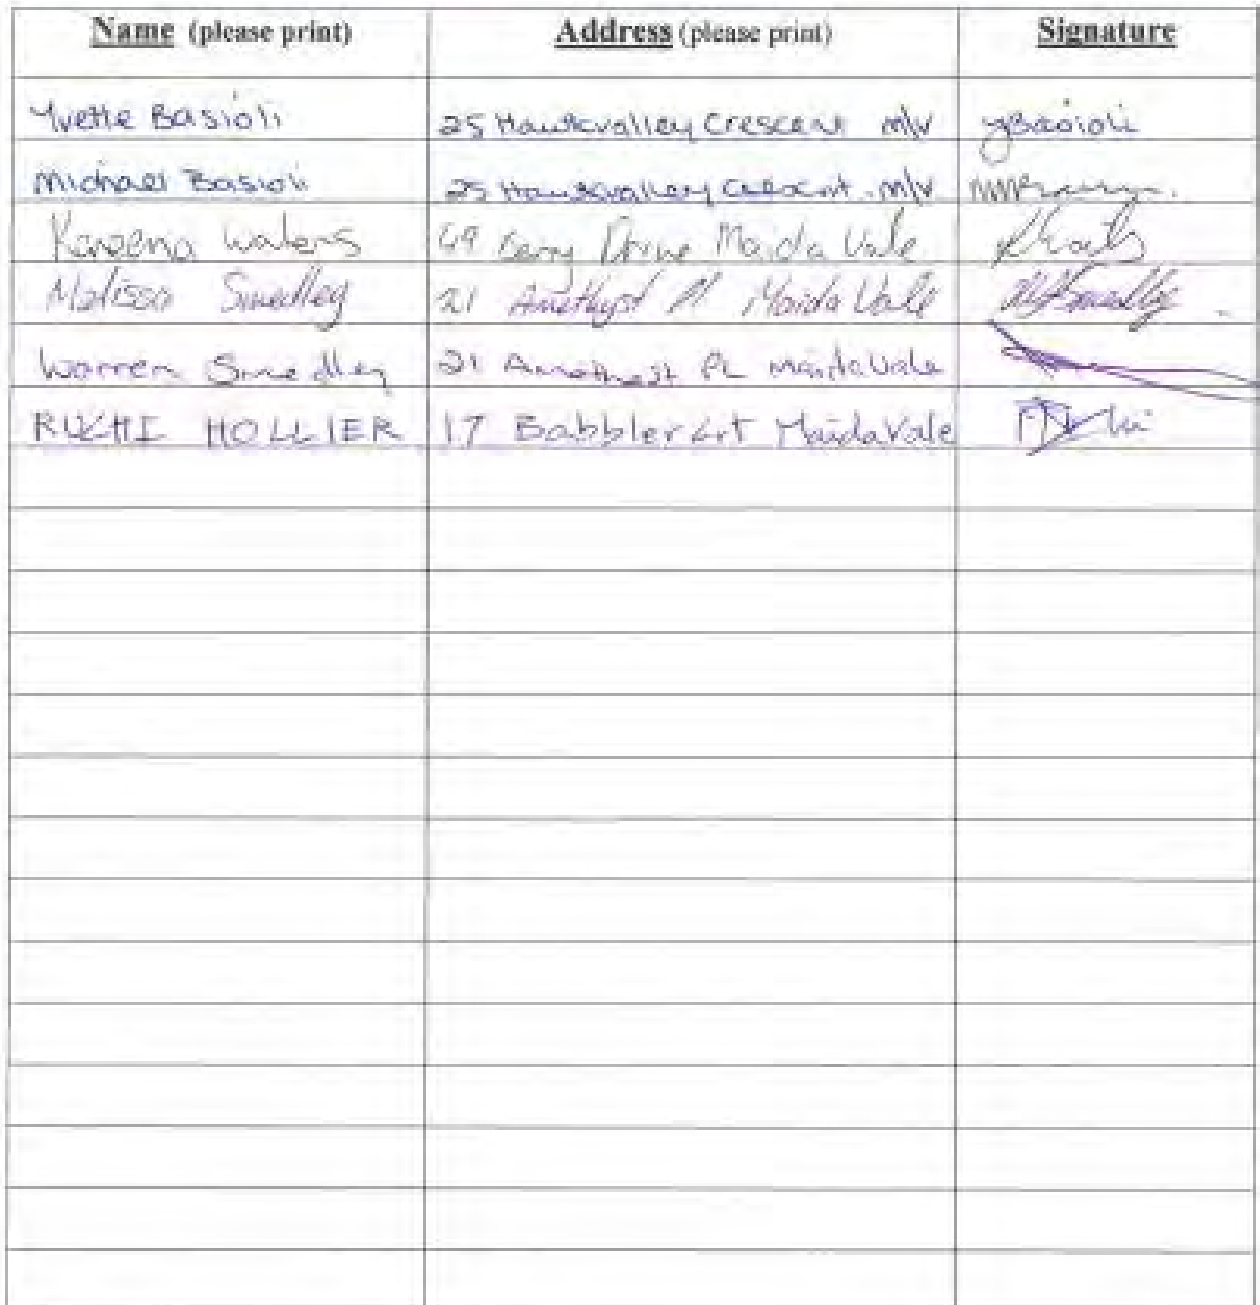 Name (please print) Address (please print) Signature
Yvette Basioli 25 Hawkvalley Crescent m/v yBasioli
Michael Basioli 25 Hawkvalley Crescent m/v
Kareena Waters Drive Maida Vale
Melissa Smedley 21 Amethyst Pl Maida Vale Smedley
Warren Smedley 21 Pl Maida Vale
HOLLIER 17 Babbler Crt Maida Vale